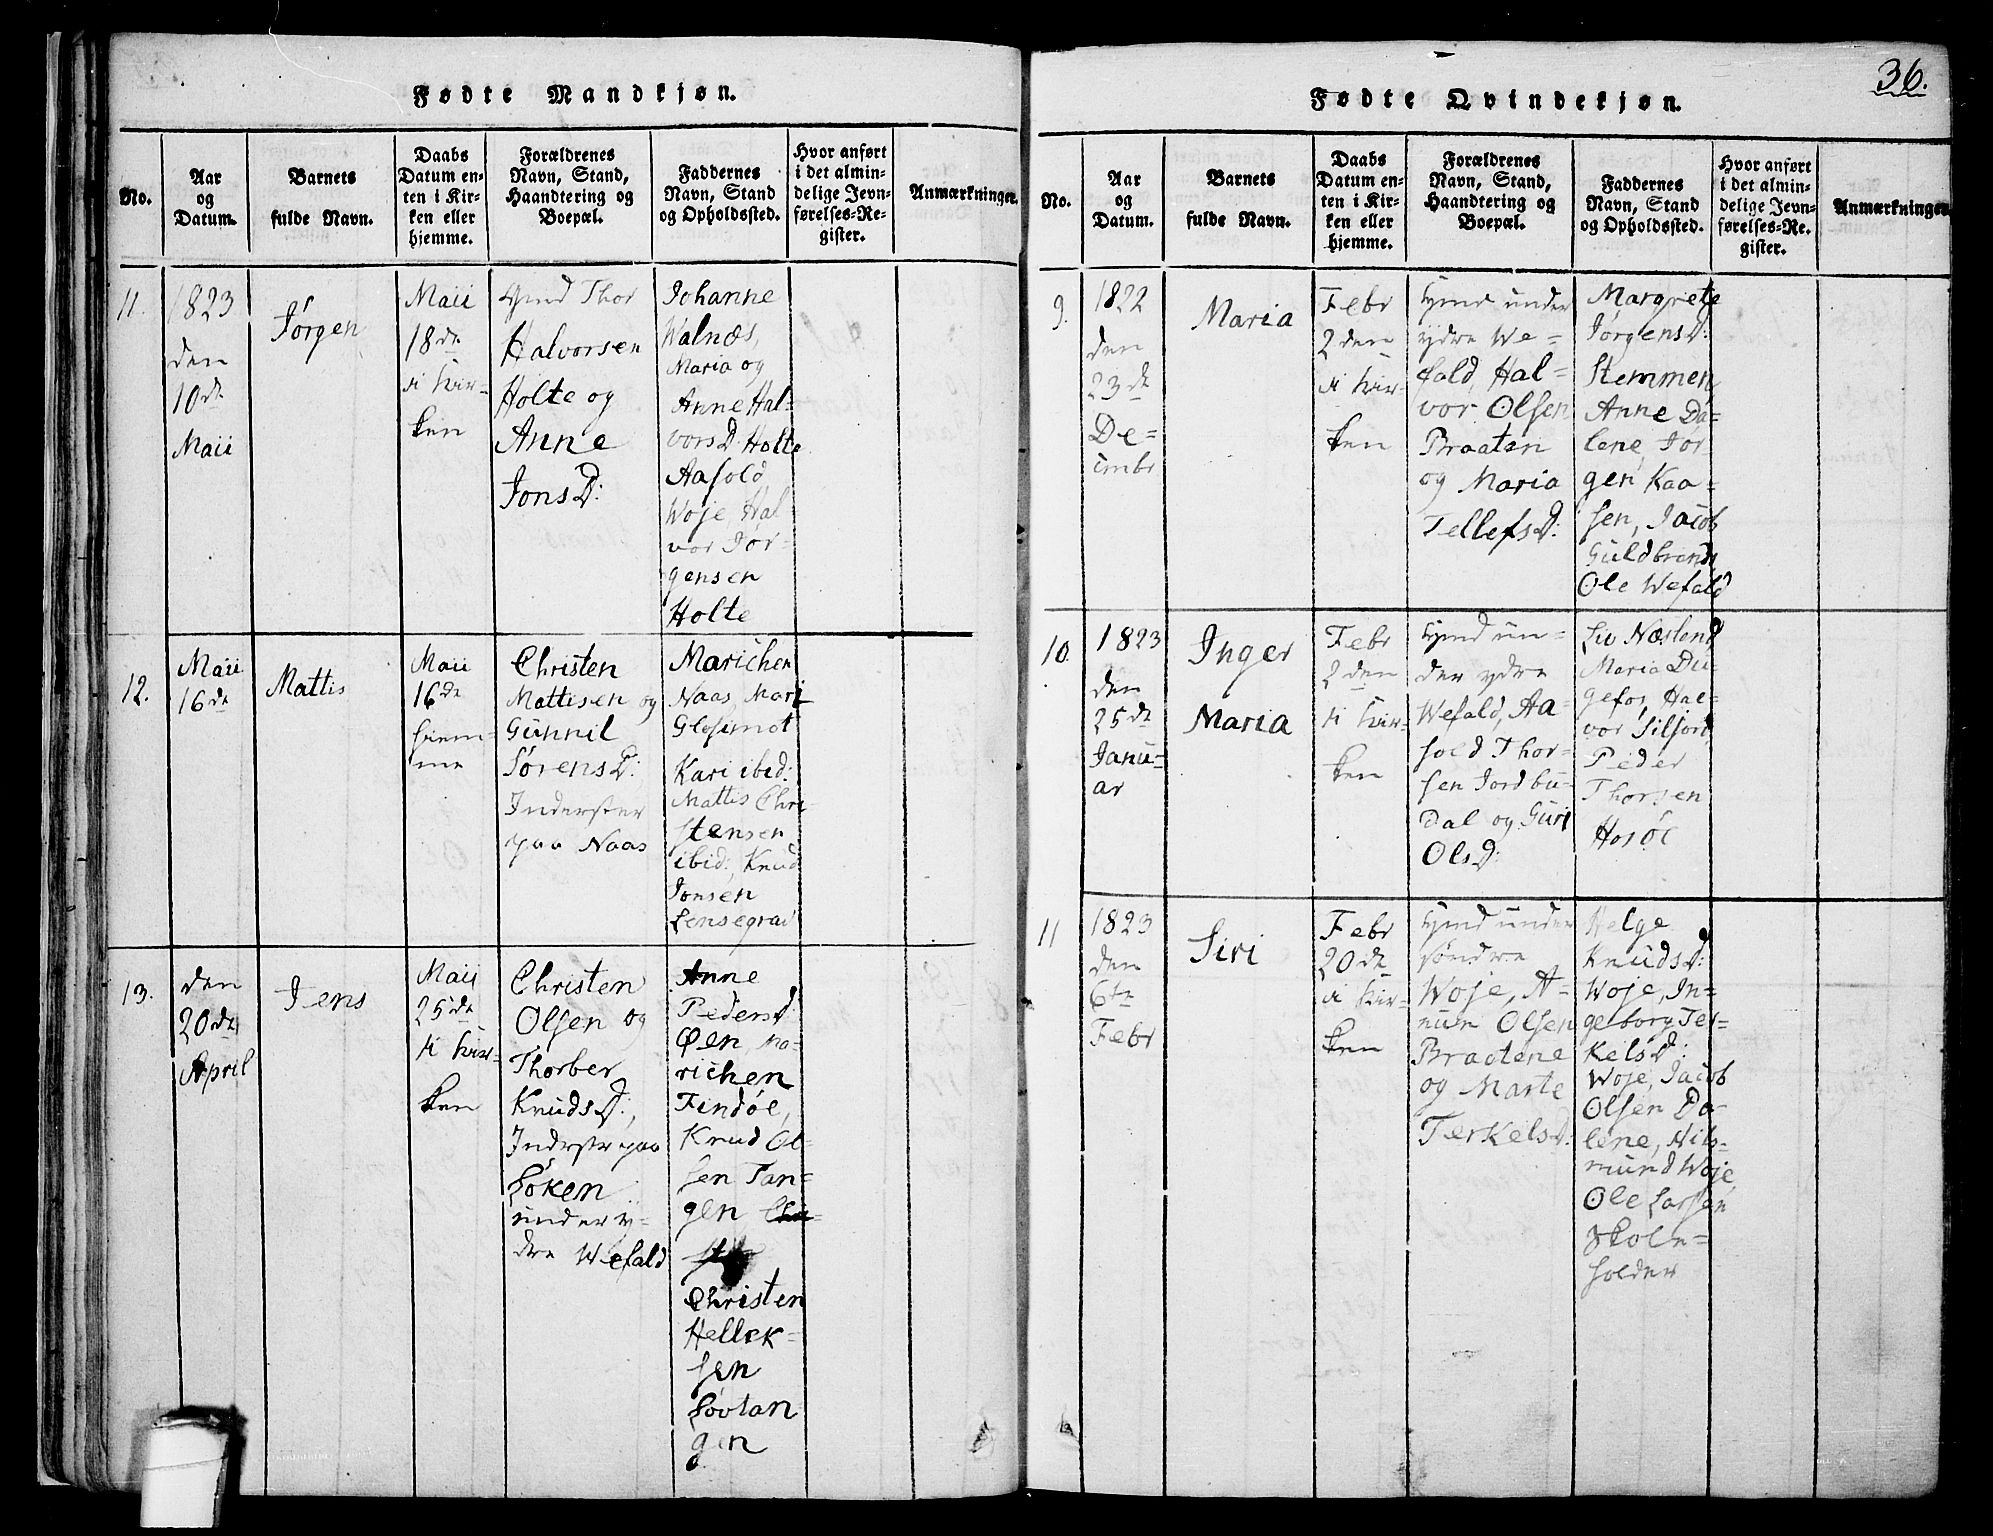 Fødte Mandkjøn.
No.
Aar
og
Datum.
Barnets
fulde Navn.
Daabs
Datum en-
ten i Kir-
ken eller
hjemme.
Forældrenes
Navn, Stand,
Haandtering og
Boepæl.
Faddernes
Navn, Stand
og Opholdssted.
Hvor anført
i det almin-
delige Jevn-
førelses-Re-
gister.
Anmærkninger.
11.
1823
den
10de
Maii
Jørgen
Maii
18de
i Kir-
ken
Thor
Halvorsen
Holte og
Anne
JonsD:
Johanne
Walnæs,
Maria og
Anne Hal-
vorsD: Holte
Aasold
Woje, Hal-
vor Jør-
gensen
Holte
12.
Maii
16de
Mattis
Maii
16de
hiem-
me
Christen
Mattisen og
Gunnil
SørensD:
Inderster
paa Naas
Marichen
Naas, Mari
Glosimot
Kari ibid:
Mattis Chri-
stensen
ibid:, Knud
Jonsen
Lensegrav
13.
den
20de
April
Jens
Maii
25de
i Kir-
ken
Christen
Olsen og
Thorber
KnudsD:,
Inderster paa
Løken
under y-
dre Wefald
Anne
PedersD:
Øen, Ma-
richen
Findøl,
Knud Ol-
sen Tan-
gen
Christen
Hellek-
sen
Løvtan
gen
36.
Fødte Qvindekjøn.
No.
Aar
og
Datum.
Barnets
fulde Navn.
Daabs
Datum en-
ten i Kir-
ken eller
hjemme.
Forældrenes
Navn, Stand,
Haandtering og
Boepæl.
Faddernes
Navn, Stand
og Opholdssted.
Hvor anført
i det almin-
delige Jevn-
førelses-Re-
gister.
Anmærkninger
9.
1822
den
23de
De-
cembr
Maria
Febr
2den
i Kir-
ken
Hmd under
ydre We-
fald, Hal-
vor Olsen
Braaten
og Maria
TellefsD:
Margrete
JørgensD:
Stemmen
Anne Da-
lene, Jør-
gen Kaa-
sen, Jacob
Guldbrands
Ole Wefald
10.
1823
den
25de
Janu-
ar
Inger
Maria
Febr
2den
i Kir-
ken
Hmd un-
der ydre
Wefald, Aa-
sold Thor-
sen Jordbu-
dal og Guri
OlsD:
Liv Næslend
Maria Du-
gefos, Hal-
vor Siljord,
Peder
Thorsen
Hosøl
11
1823
den
6te
Febr
Siri
Febr
20de
i Kir-
ken
Hmd under
søndre
Woje, A-
mun Olsen
Braatene
og Marte
TerkelsD:
Helge
KnudsD:
Woje, In-
geborg Ter-
kelsD:
Woje, Jacob
Olsen Da-
lene,
mund Woje
Ole Larsen
Skole-
holder